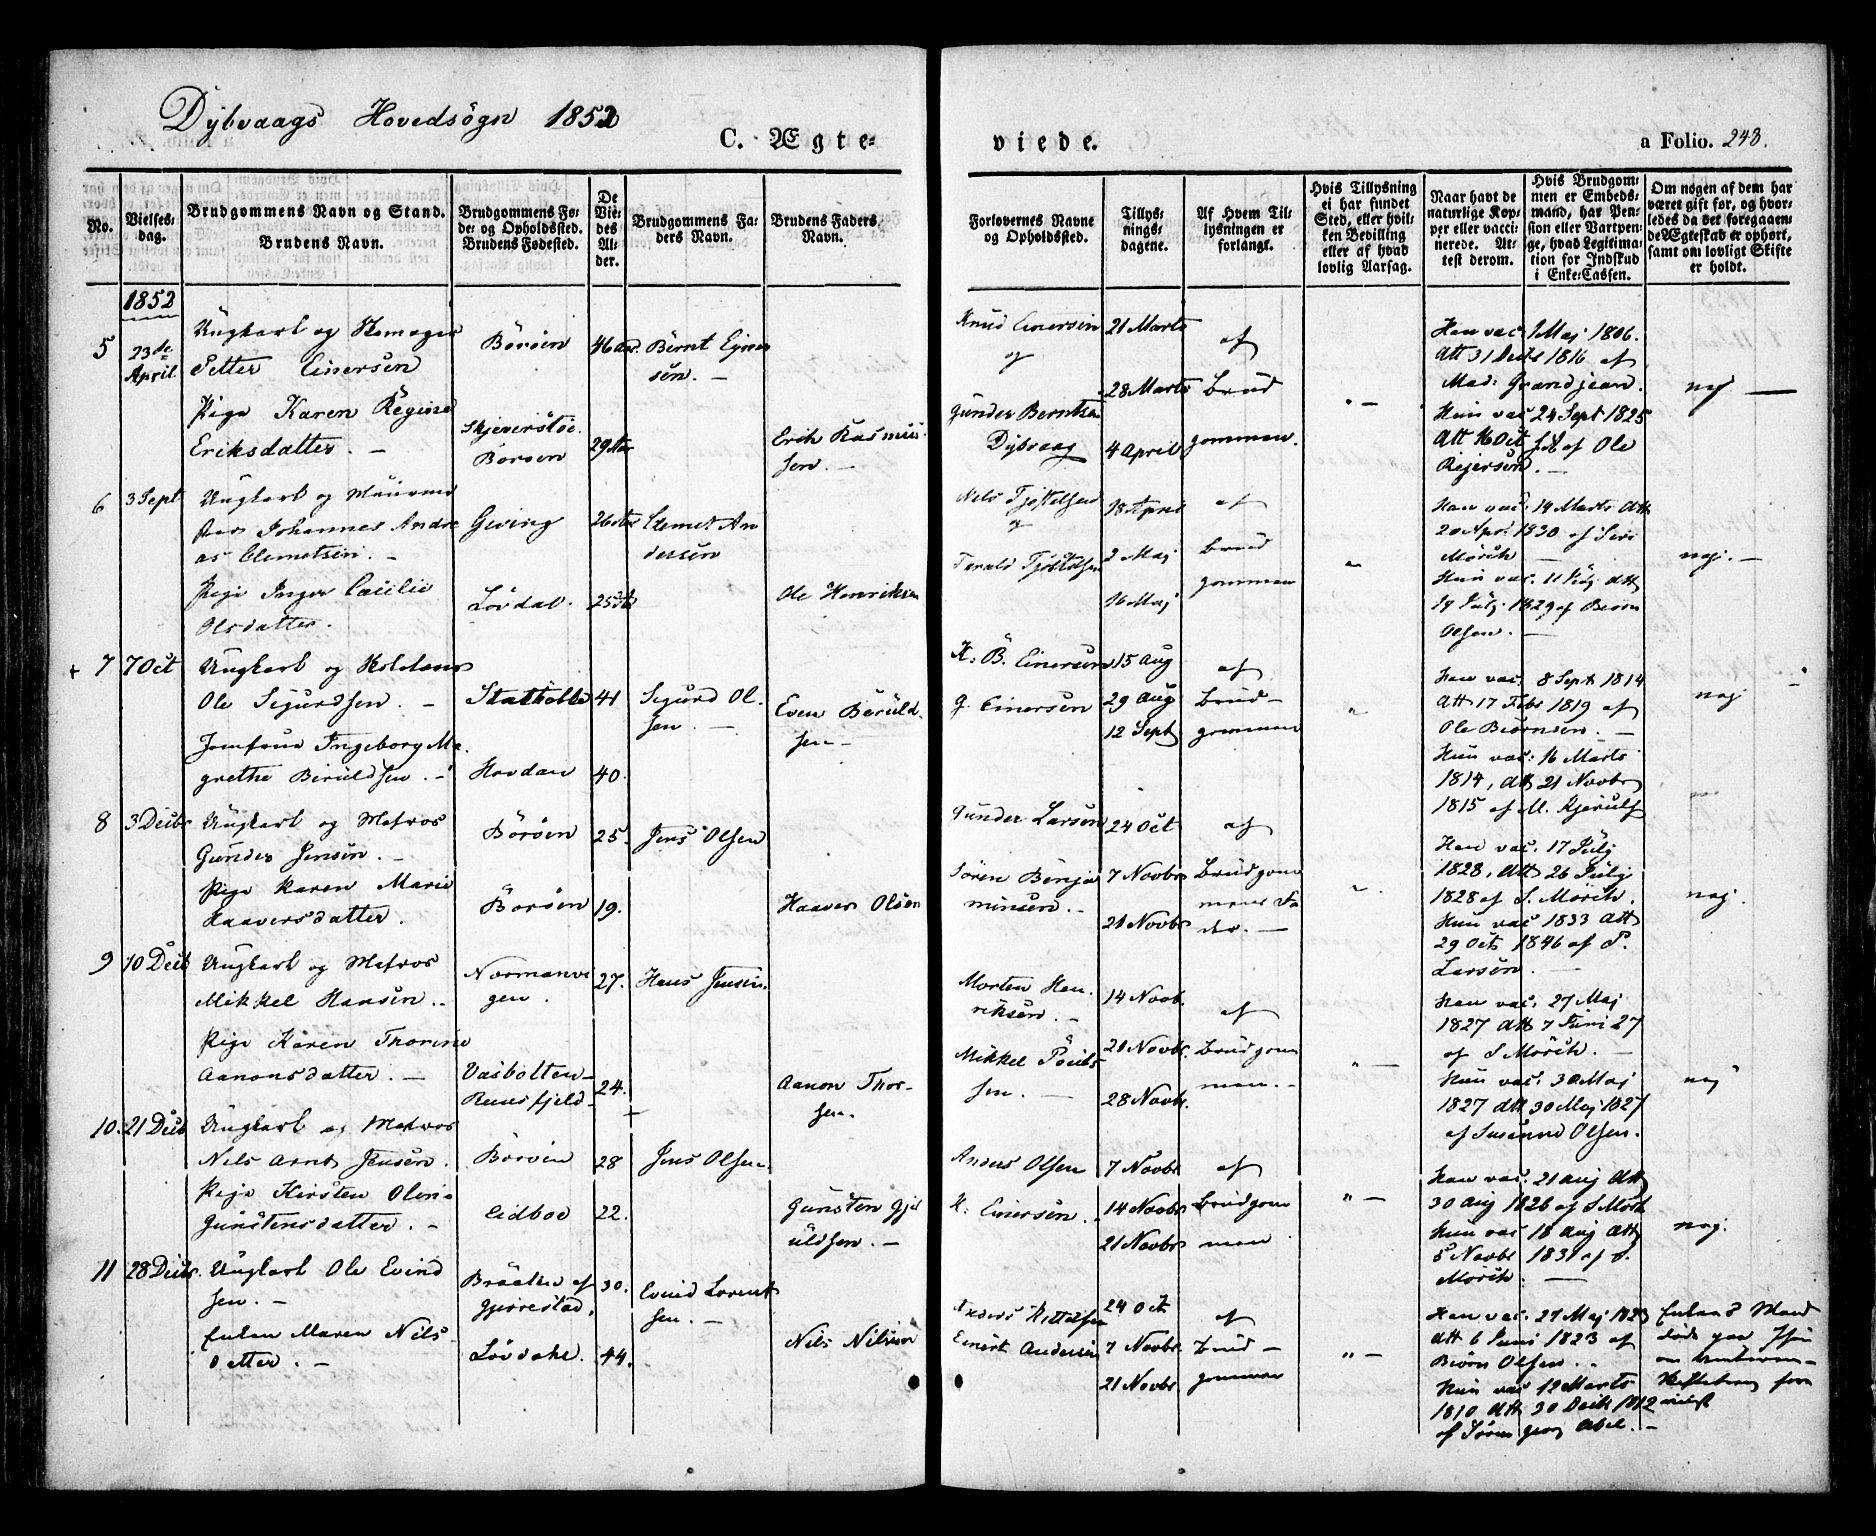 Dybvaags Hovedsøgn 1852
C. Ægte-
viede.
a Folio. 243.
No.
Vielses-
dag.
Brudgommens Navn og Stand.
Brudens Navn.
Brudgommens Fø-
de- og Opholdssted.
Brudens Fødested.
De
Vie-
des
Al-
der.
Brudgommens Fa-
ders Navn.
Brudens Faders
Navn.
Forlovernes Navne
og Opholdssted.
Tillys-
nings-
dagene.
Af Hvem Til-
lysningen er
forlangt.
Hvis Tillysning
ei har fundet
Sted, eller hvil-
ken Bevilling
eller af hvad
lovlig Aarsag.
Naar havt de
naturlige Kop-
per eller vacci-
nerede. At-
test derom.
Hvis Brudgom-
men er Embeds-
mand, har Pen-
sion eller Vartpen-
ge, hvad Legitima-
tion for Indskud
i Enke-Cassen.
Om nogen af dem har
været gift før, og hvor-
ledes da det foregaaen-
de Ægteskab er ophørt,
samt om lovligt Skifte
er holdt.
1852
5
23de
April
Ungkarl og
Petter Einersen
Pige Karen Regine
Eriksdatter. -
Börøen
Börøen
46 aar.
29 Aar
Bernt Eyner
sen. -
Erik Rasmus-
sen. -
Knud Einersen
og
Gunder Berntsen
Dybvaag
21 Marts
28 Marts
4 April
af
Brud
gommen.
" -
Han vac. 1 Maj 1806.
Att 31 Decb 1816 af
Mad: Grandjean.
Hun vac 24 Sept 1825
Att 16 Oct af Ole
Reiersen. -
nej -
6
3 Sept
Ungkarl og
Johannes Andre
as Clemetsen. -
Pige Inger Cecilie
Olsdatter.
Giving
Lövdal.
26 Ar
25 Ar
Clemet An
dersen
Ole Henriksen
Nels Tjöstelsen
og
Tarald Tjöstolsen
18 April
2 Maj
16 Maj
af
Brud
gommen
"
Han vac: 14 Marts Att
20 Apr: 1830 af
Mörch -
Hun vac. 11 Julj Att
19 Julj 1829 af Biörn
Olsen. -
nej. -
+ 7
7 Oct
Ungkarl og
Ole Sigurdsen. -
Jomfrue Ingeborg Ma-
grethe Beruldsen. -
Stathelle
Hovdan
41
40.
Sigurd Ol-
sen. -
Even Beruld-
sen -
K: B. Einersen
G. Einersen
15 Aug
29 Aug
12 Sept
af
Brud-
gommen
"
Han vac. 8 Sept 1814
Att 17 Febr 1819 af
Ole Biörnsen. -
Hun vac: 16 Marts
1814, Att 21 Novbr
1815 af M. Kjerulf
nej
8
3 Decbr
Ungkarl og Matros
Gunder Jensen. -
Pige Karen Marie
Haaversdatter.
Börøen
Börøen
25.
19.
Jens Olsen
Haaver Olsen
Gunder Larsen
Sören Benja
minsen. -
24 Oct
7 Novbr
21 Novbr
af
Brudgom
mens Fa
der. -
Han vac. 17 Julj
1828, Att 26 Julj
1828 af S. Mörch.
Hun vac. 1833 Att
29 Oct 1846 af P.
Larsen. -
nej.
9
10 Decb
Ungkarl og Matros
Mikkel Hansen. -
Pige Karen Thorine
Aanonsdatter. -
Normanvi
gen.
Vasbotten-
27.
24.
Hans Jensen.
Aanon Thor-
sen.
Morten Hen-
riksen. -
Mikkel
sen. -
14 Novb.
21 Novbr.
28 Novbr.
af
Brudgom
men. -
" -
Han vac. 27 Maj
1827 Att 7 Juni 27
af S Mörch. -
Hun vac. 30 Maj
1827 Att 30 Maj 1827
af Susanne Olsen.
nej
10.
21 Decb
Ungkarl og Matros
Nels Arnt Jensen.
Pige Kirsten Oline
Gunstensdatter. -
Börøen
Eidboe
28
22.
Jens Olsen
Gunsten Gjel
uldsen. -
Anders Olsen
K: Einersen.
7 Novbr
14 Novbr
21 Novbr
af
Brudgom
men
" -
Han vac. 21 Aug Att
30 Aug 1826 af S Mörch
Hun vac 18 Aug Att
5 Novbr 1831 af S.
Mörch. -
nej.
11
28 Decbr.
Ungkarl Ole Evind
sen. -
Enken Maren Nils-
datter. -
Bråtten af
Gjerrestad.
Lövdale.
30.
44.
Evind Lorent
sen. -
Nels Nilsen
Anders Kittelsen
Einert Andersen
24 Oct.
7 Novbr
21 Novbr
af
Brud-
gommen
" -
Han vac. 27 Maj 1823
Att 6 Juni 1823 af
Biörn Olsen. -
Hun vac 12 Marts
1810 Att 30 Decb 1812
af Sören Georg Abel. -
Enkens Mand
död paa